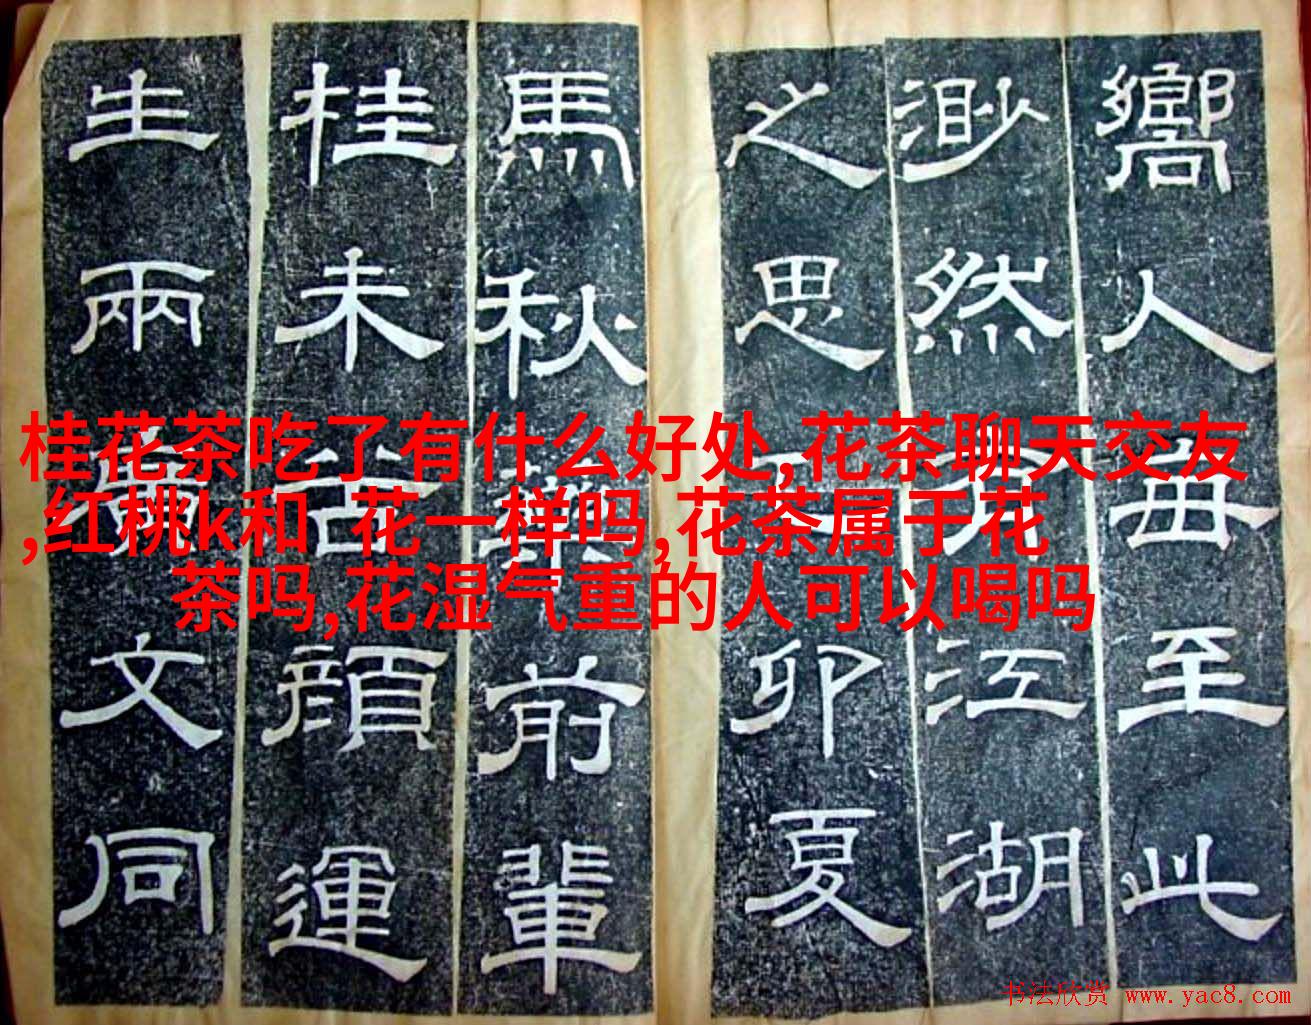 嚮人每至此
渺然有江湖
之思丁卯夏
馬秋藥前輩
桂未谷顔運
生兩廣文同
桂花茶吃了有什么好处,花茶聊天交友
,红桃k和 花一样吗,花茶属于花
茶吗,花湿气重的人可以喝吗
书法欣赏 www.yac8.com